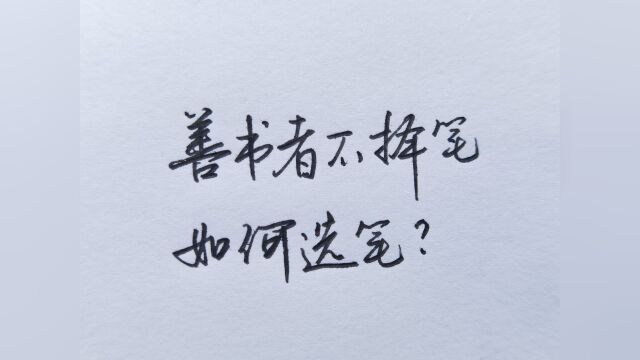 善书者不择笔
如何选笔?